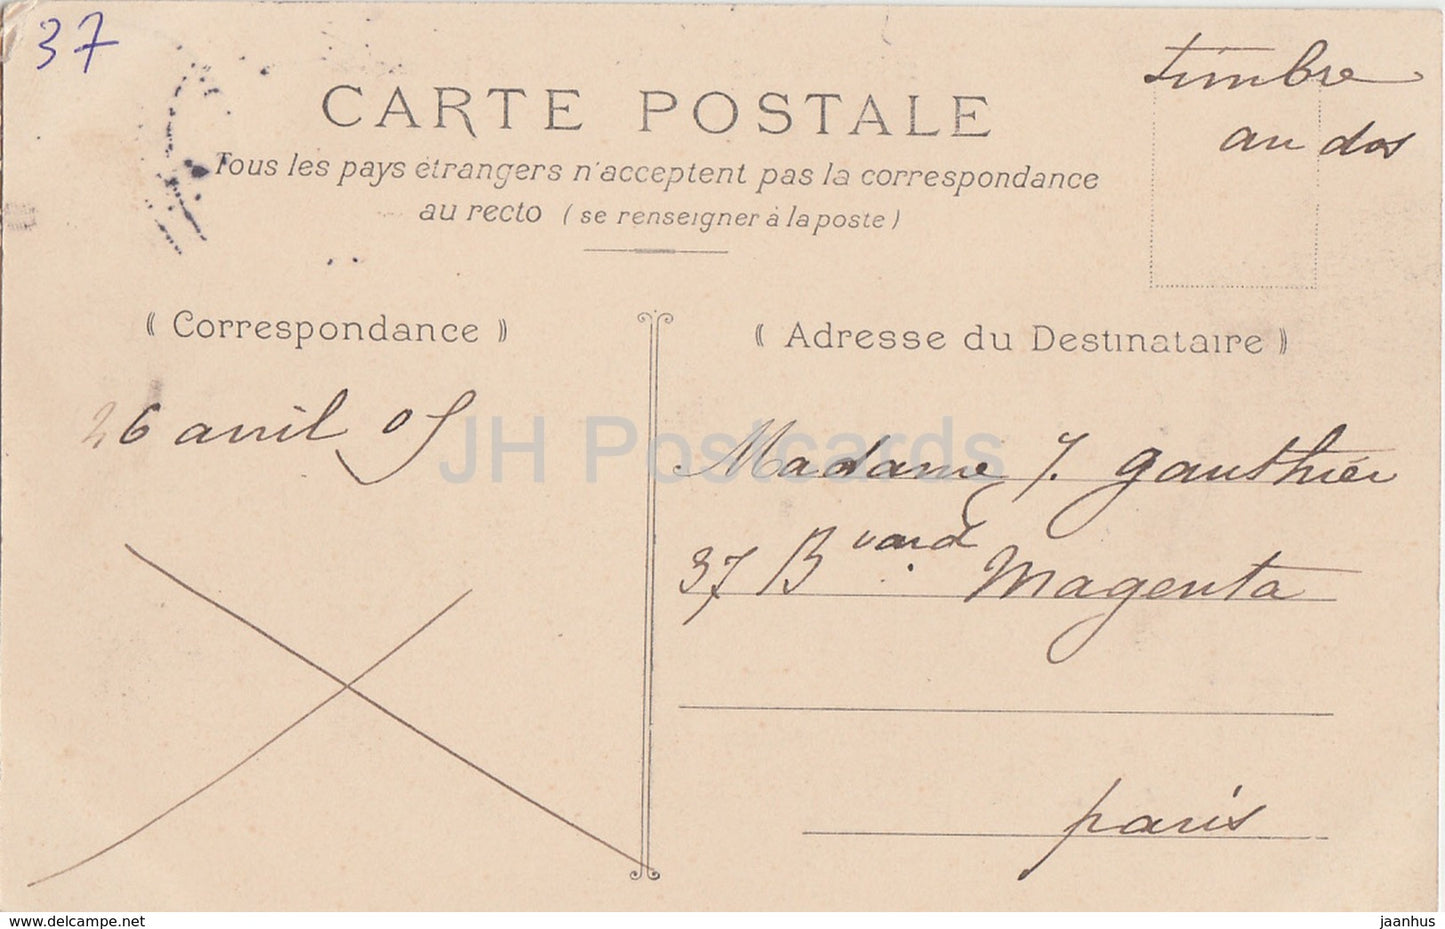 37
timbre
au dos
CARTE POSTALE
Tous les pays étrangers n'acceptent pas la correspondance
au recto (se renseigner à la poste)
⸨ Correspondance ⸩
⸨ Adresse du Destinataire ⸩
26 avril 05
Madame J. Gauthier
37 Bvard Magenta
paris
JH Postcards
www.delcampe.net
jaanhus